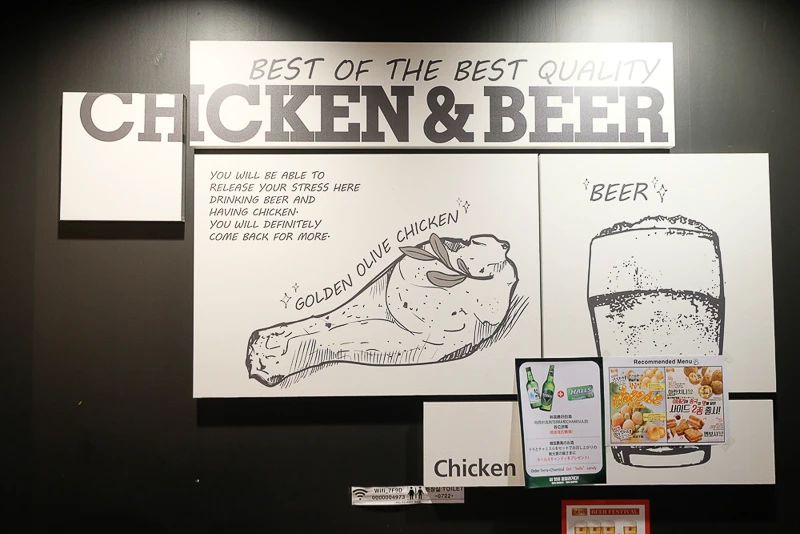 BEST OF THE BEST QUALITY
CHICKEN & BEER
YOU WILL BE ABLE TO
RELEASE YOUR STRESS HERE
DRINKING BEER AND
HAVING CHICKEN.
YOU WILL DEFINITELY
COME BACK FOR MORE.
GOLDEN OLIVE CHICKEN
BEER
Recommended Menu
사이드 2종 출시!
Chicken
Wifi_7F9D
0000004973
TOILET
-0722-
BEER FESTIVAL